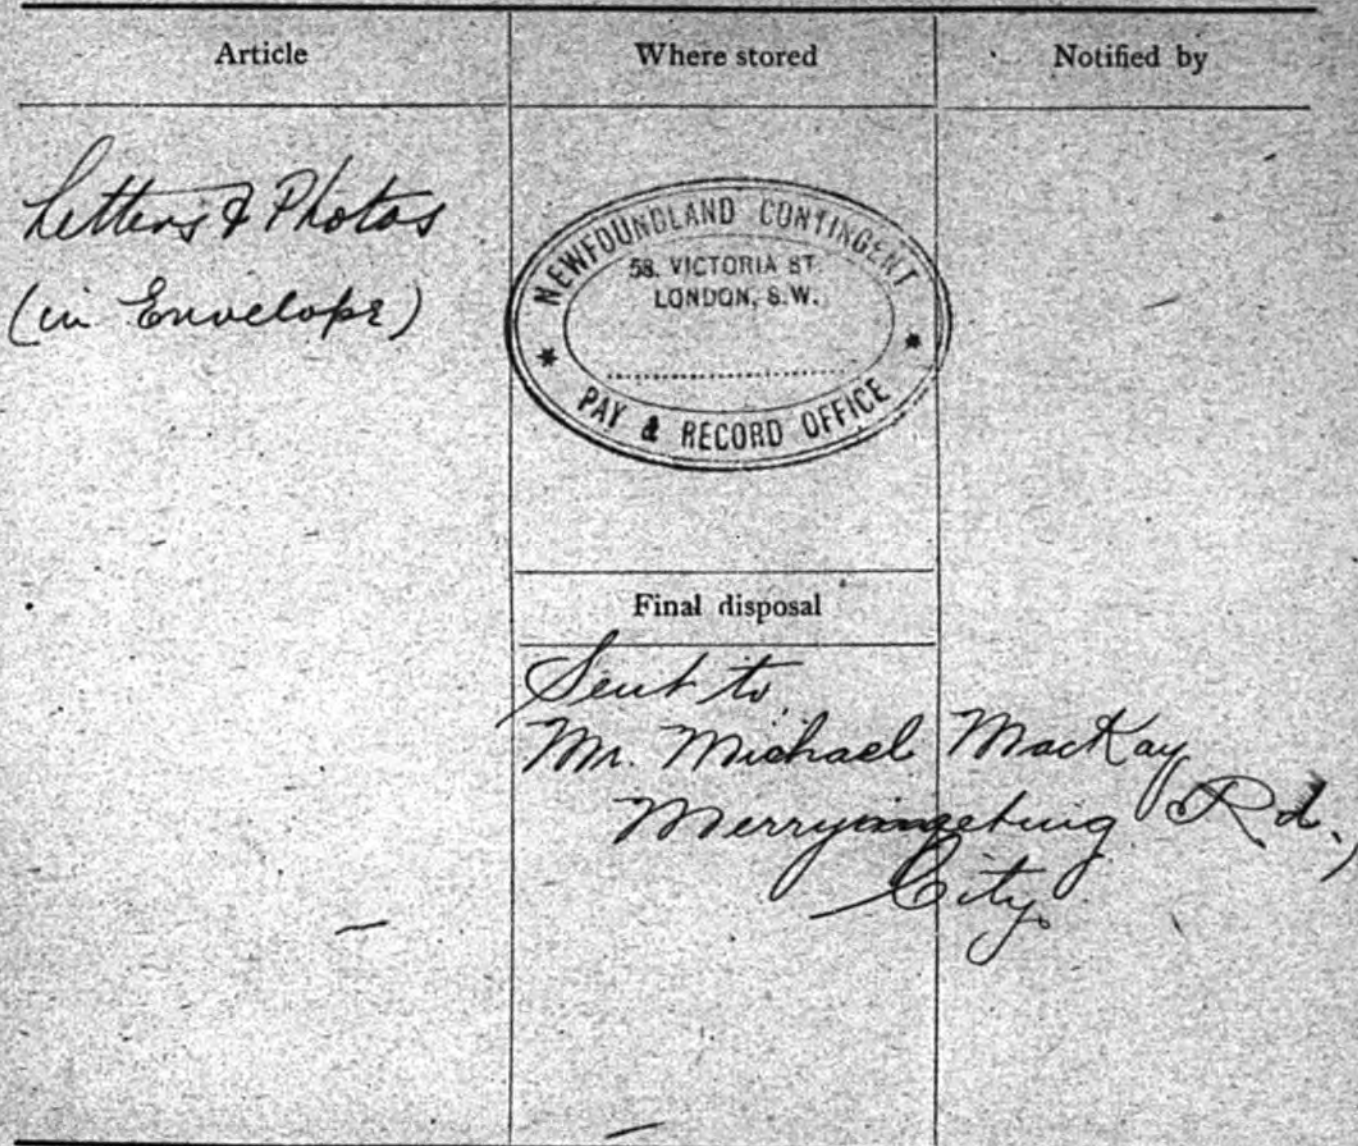 Article
Where stored
Notified by
Letters & Photos
(in Envelope)
NEWFOUNDLAND CONTINGENT
58. VICTORIA ST.
LONDON, S.W.
PAY & RECORD OFFICE
Final disposal
Sent to
Mr. Michael MacKay
Merrymeeting Rd.,
City.